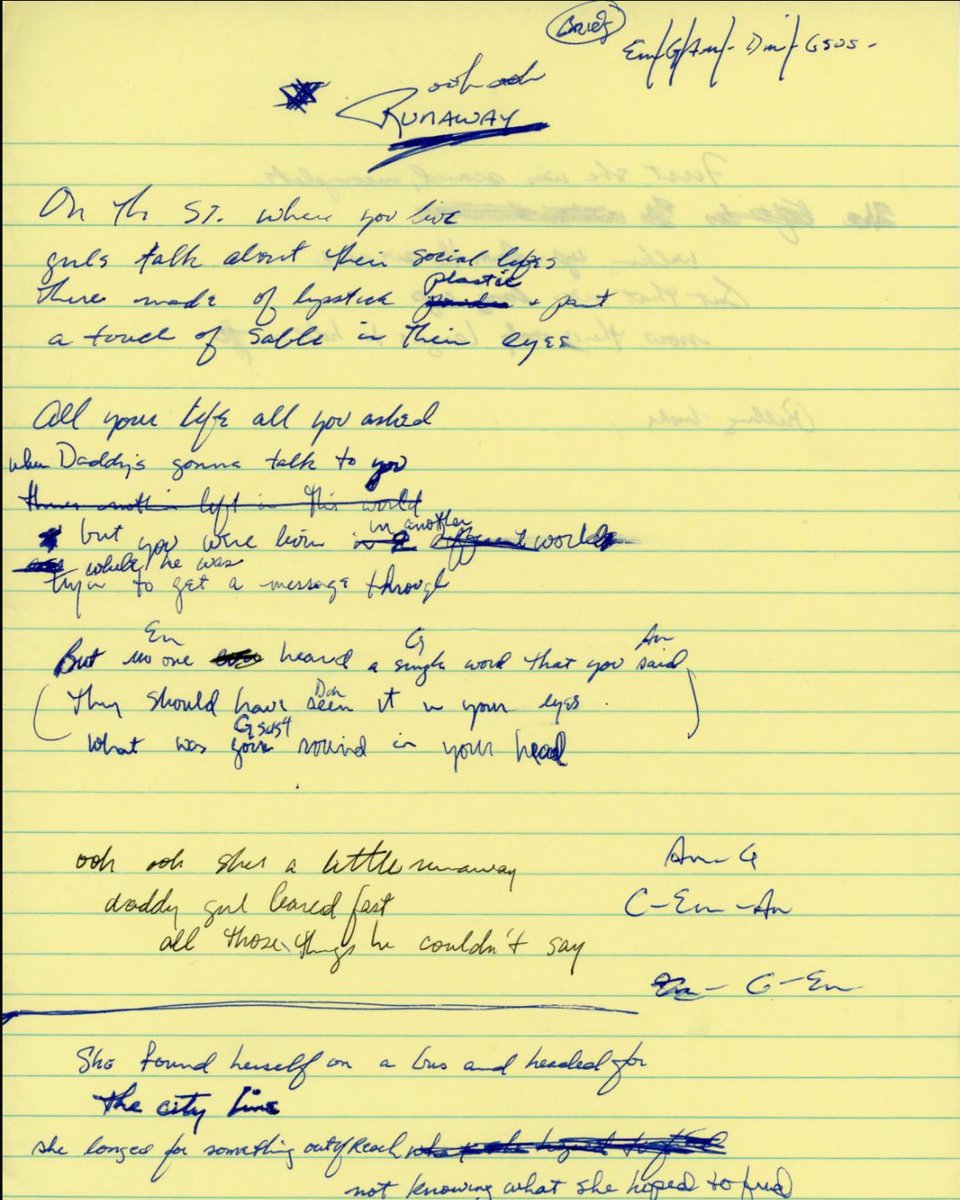 Bridg
Em/G/Am/- Dm/- Gsus -
ooh ooh
RUNAWAY
On th ST. where you live
girls talk about their social lifes
plastic
there made of lipstick + paint
a touch of sable in their eyes
All your life all you asked
when Daddy's gonna talk to you
theres nothin left in this world
in another
but you were livin in a different world
while he was
tryin to get a message through
Em G Am
But no one heard a single word that you said
Dm
They should have seen it in your eyes.
Gsus4
What was goin round in your head
ooh ooh shes a little runaway
Am-G
daddy girl learned fast
C-Em-Am
all those things he couldn't say
G-Em
She found herself on a bus and headed for
the city line
she longed for something out of Reach
not knowing what she hoped to find